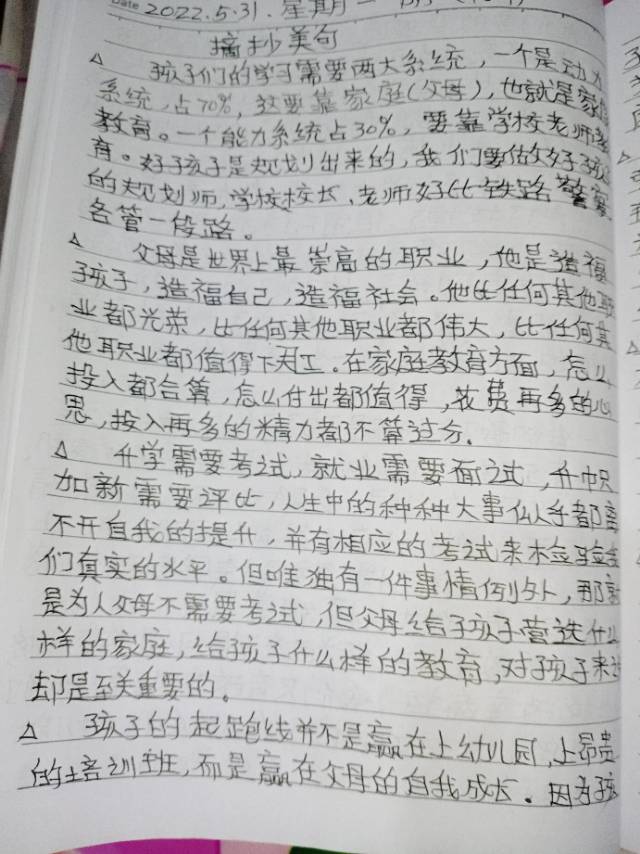 Date 2022.5.31. 星期一
摘抄美句
△ 孩子们的学习需要两大系统，一个是动力
系统，占70%，这要靠家庭(父母)，也就是家庭
教育。一个能力系统占30%，要靠学校老师教
育。好孩子是规划出来的，我们要做好孩
的规划师，学校校长、老师好比铁路警察
各管一段路。
△ 父母是世界上最崇高的职业，他是造福
孩子，造福自己，造福社会。他比任何其他职
业都光荣，比任何其他职业都伟大，比任何其
他职业都值得下天工。在家庭教育方面，怎么
投入都合算，怎么付出都值得，花费再多的心
思，投入再多的精力都不算过分。
△ 升学需要考试，就业需要面试，升职
加薪需要评比，人生中的种种大事似乎都离
不开自我的提升，并有相应的考试来检验
们真实的水平。但唯独有一件事情例外，那就
是为人父母不需要考试，但父母给孩子营造什么
样的家庭，给孩子什么样的教育，对孩子来说
却是至关重要的。
△ 孩子的起跑线并不是赢在上幼儿园，上昂贵
的培训班，而是赢在父母的自我成长。因为孩